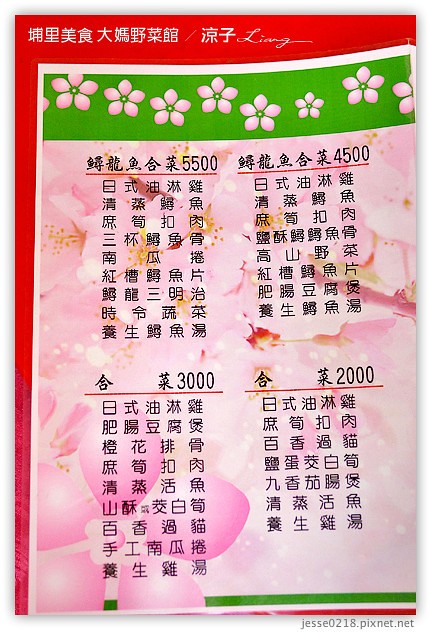 埔里美食 大媽野菜館 / 涼子 Liang
鱘龍魚合菜5500
日式油淋雞
清蒸鱘魚
庶筍扣肉
三杯鱘魚骨
南瓜捲
紅槽鱘魚片
鱘龍三明治
時令蔬菜
養生鱘魚湯
鱘龍魚合菜4500
日式油淋雞
清蒸鱘魚
庶筍扣肉
鹽酥鱘鱘魚骨
高山野菜
紅槽鱘魚片
肥腸豆腐煲
養生鱘魚湯
合菜3000
日式油淋雞
肥腸豆腐煲
橙花排骨
庶筍扣肉
清蒸活魚
山酥或茭白筍
百香過貓
手工南瓜捲
養生雞湯
合菜2000
日式油淋雞
庶筍扣肉
百香過貓
鹽蛋茭白筍
九香茄腸煲
清蒸活魚
養生雞湯
jesse0218.pixnet.net